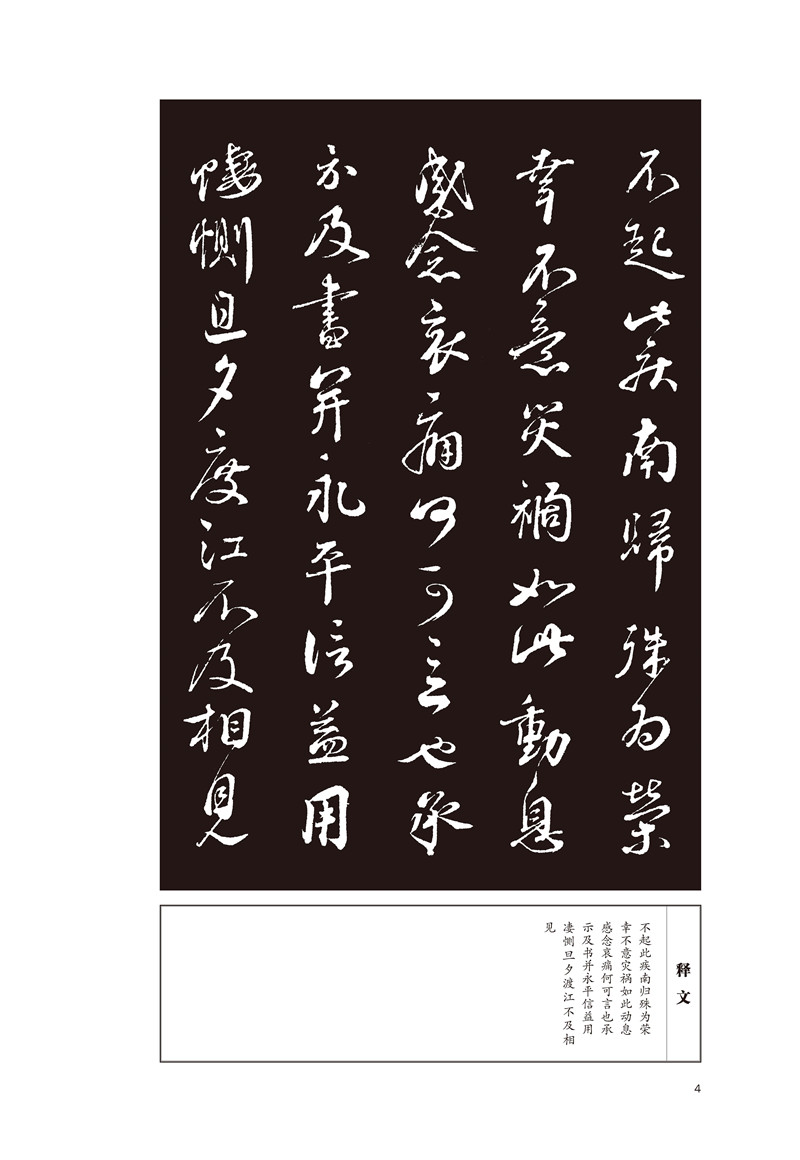 不起此疾南歸殊为荣
幸不意災禍如此動息
感念哀痛何可言也承
示及書并永平信益用
悽惻旦夕度江不及相見
释文
不起此疾南归殊为荣
幸不意灾祸如此动息
感念哀痛何可言也承
示及书并永平信益用
凄恻旦夕渡江不及相
见
4